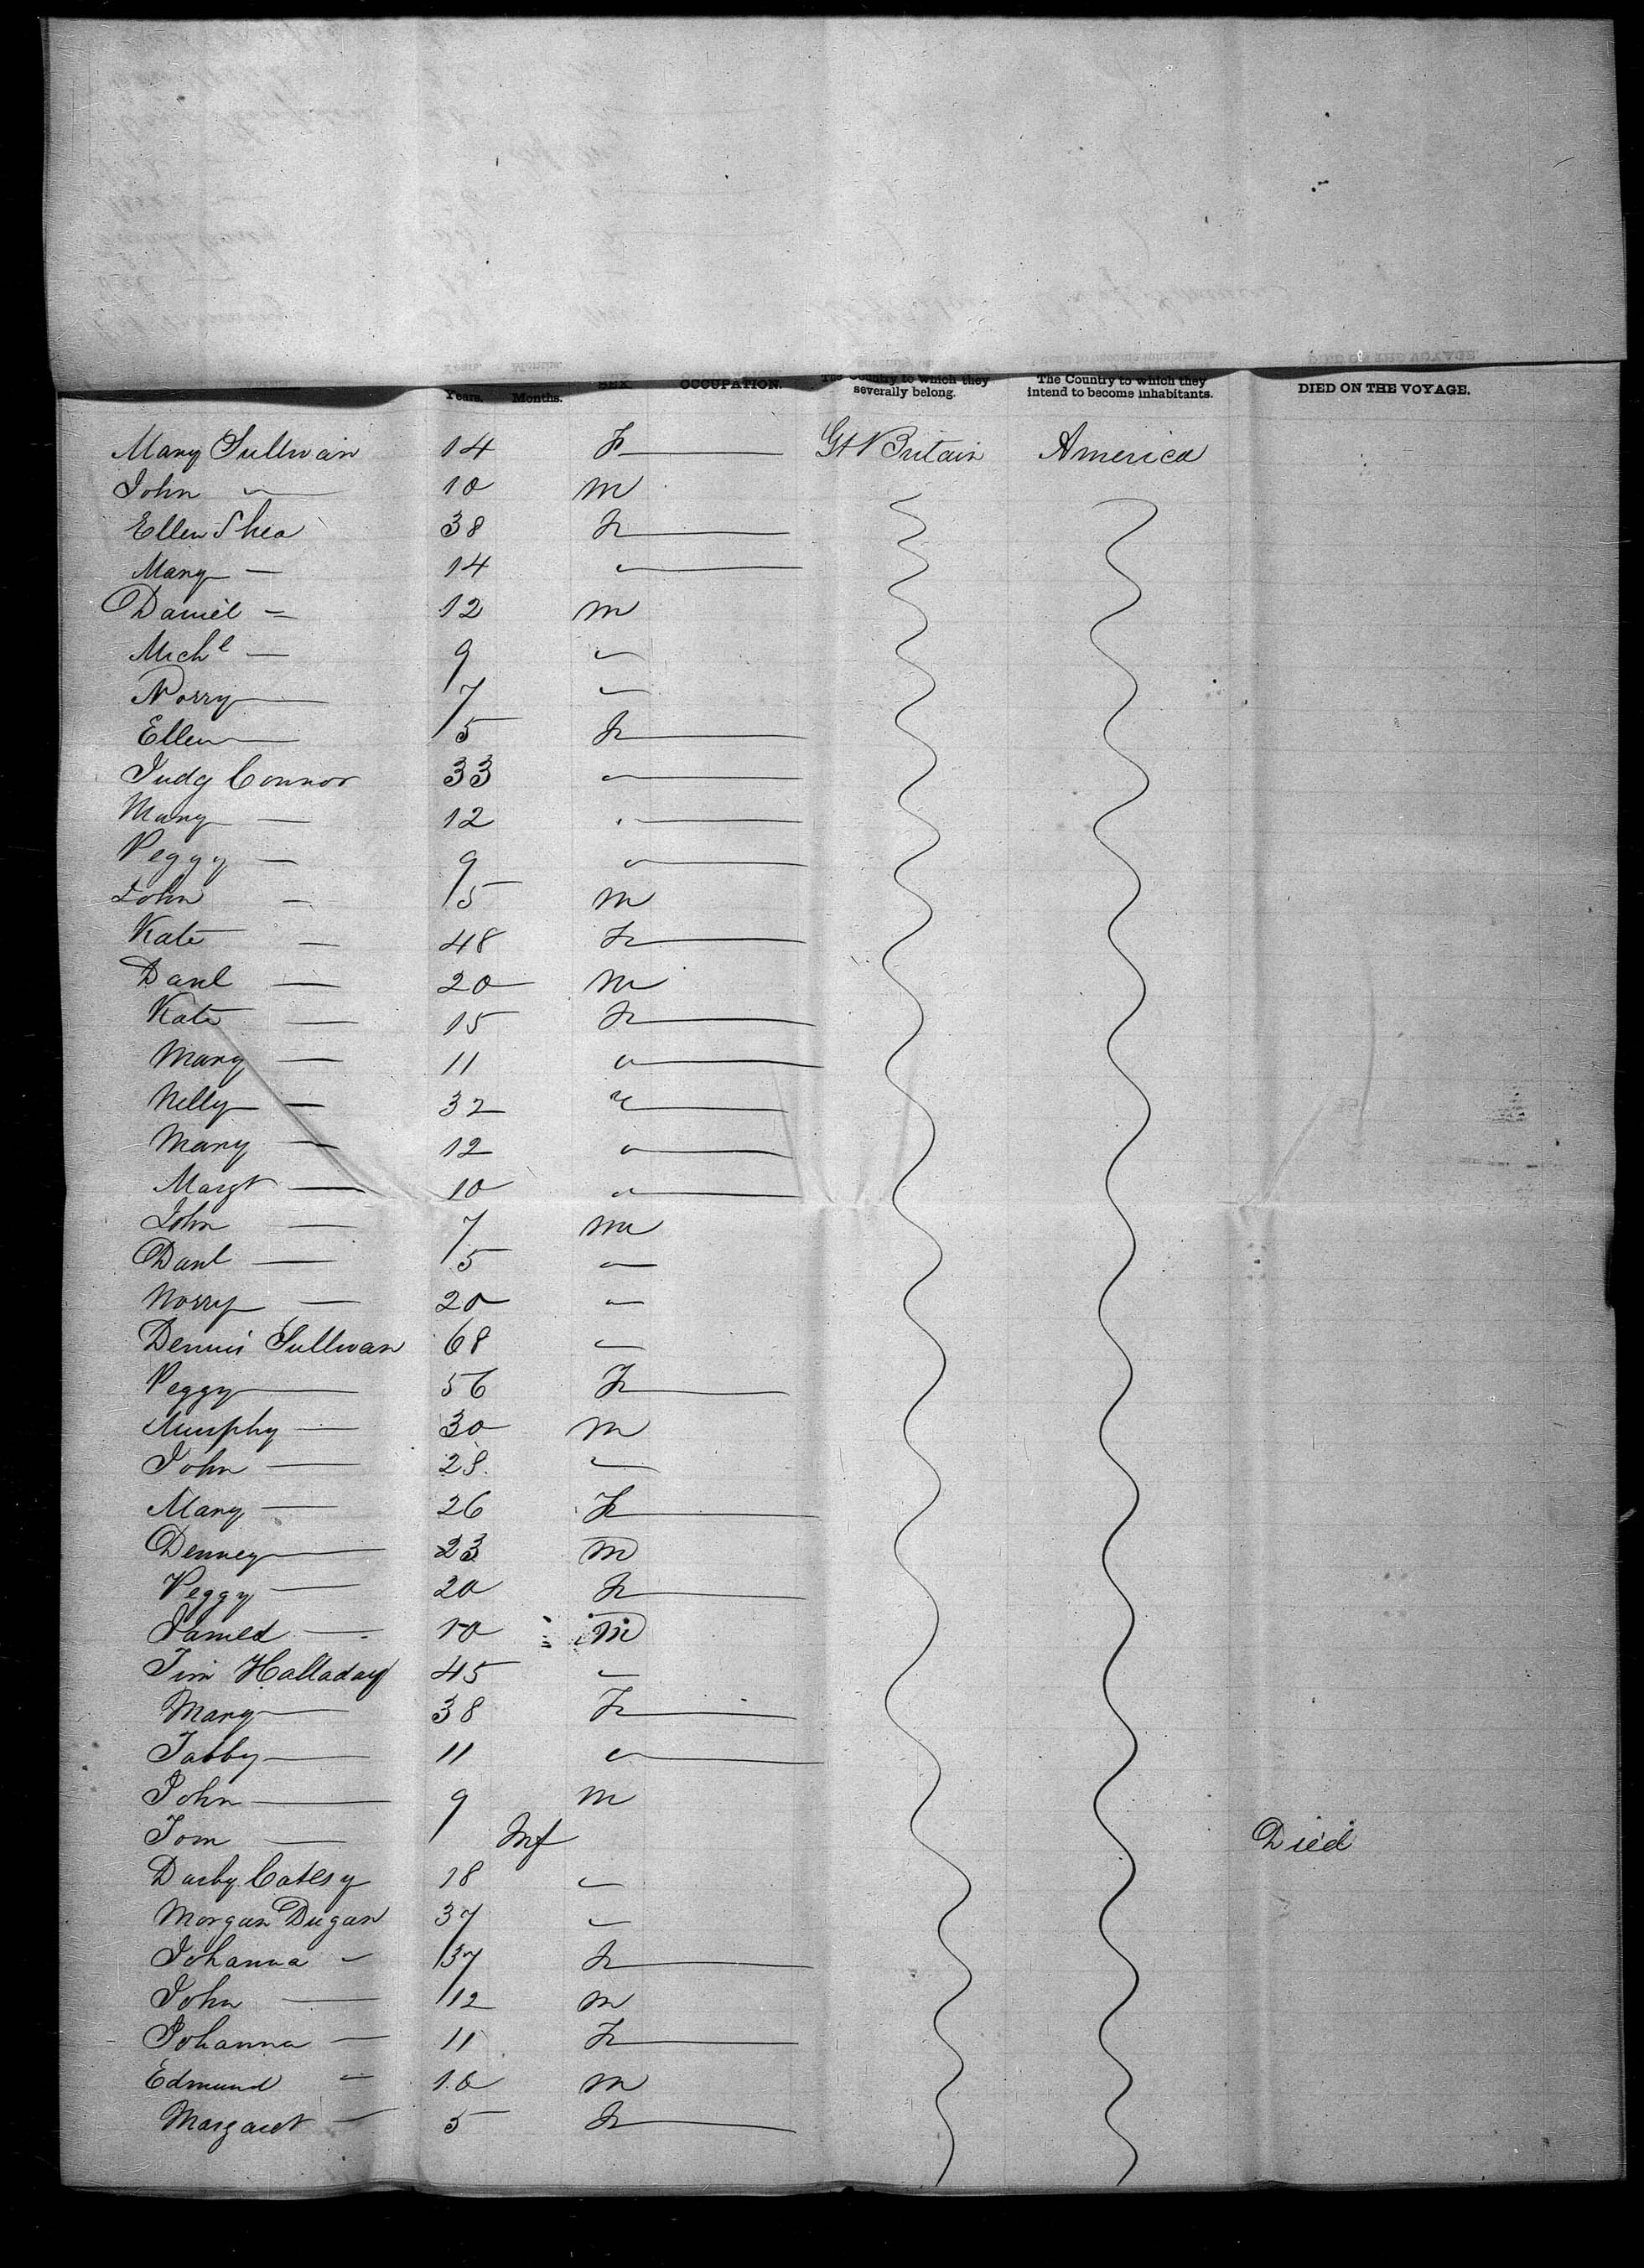 Years. Months. SEX OCCUPATION. The Country to which they severally belong. The Country to which they intend to become inhabitants. DIED ON THE VOYAGE.
Mary Sullivan 14 F Gt Britain America
John — 10 m
Ellen Shea 38 F
Mary — 14 "
Daniel — 12 m
Michl — 9 "
Norry — 7 "
Ellen — 5 F
Judy Connor 33 "
Mary — 12 "
Peggy — 9 "
John — 5 m
Kate — 48 F
Danl — 20 m
Kate — 15 F
Mary — 11 "
Nelly — 32 "
Mary — 12 "
Margt — 10 "
John — 7 m
Danl — 5 "
Norry — 20 "
Dennis Sullivan 68 "
Peggy — 56 F
Murphy — 30 m
John — 28 "
Mary — 26 F
Denney — 23 m
Peggy — 20 F
James — 10 m
Tim Halladay 45 "
Mary — 38 F
Tabby — 11 "
John — 9 m
Tom — Inf Died
Darby 18 "
Morgan Dugan 37 "
Johanna " 37 F
John — 12 m
Johanna — 11 F
Edmund " 10 m
Margaret — 5 F